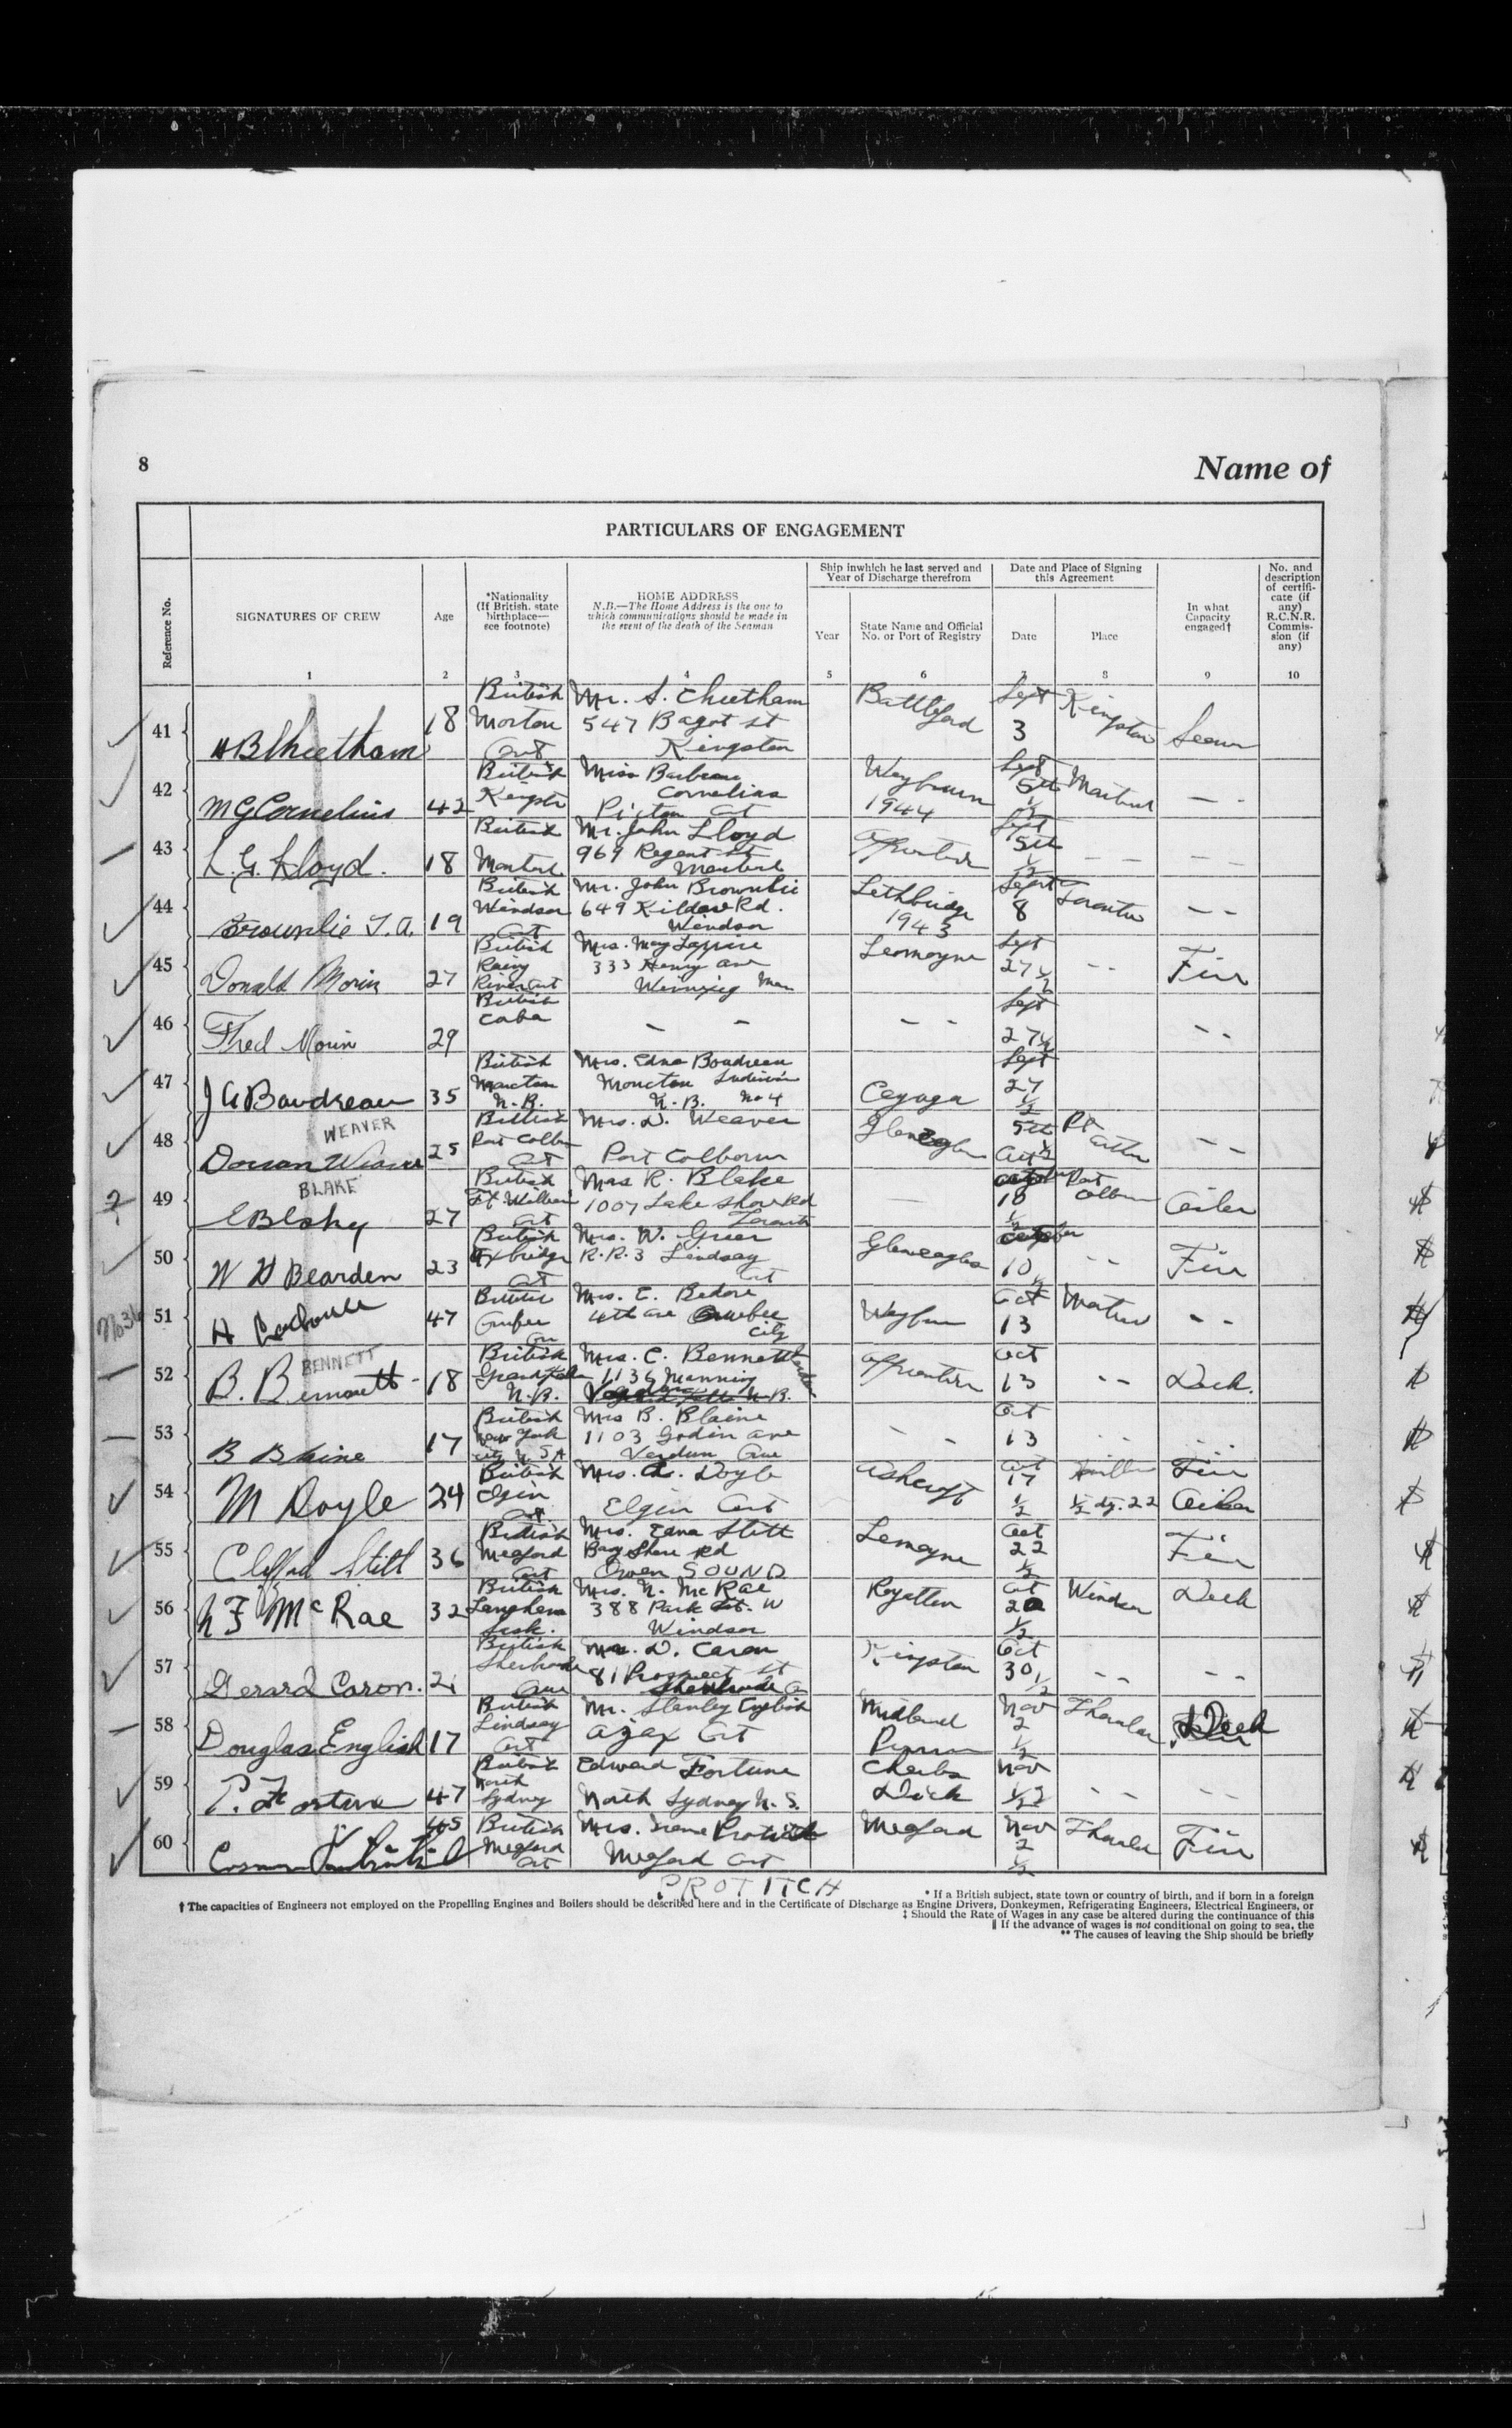 8
Name of
PARTICULARS OF ENGAGEMENT
Reference No.
SIGNATURES OF CREW
Age
*Nationality
(If British, state
birthplace—
see footnote)
HOME ADDRESS
N.B.—The Home Address is the one to
which communications should be made in
the event of the death of the Seaman
Ship inwhich he last served and
Year of Discharge therefrom
Year
State Name and Official
No. or Port of Registry
Date and Place of Signing
this Agreement
Date
Place
In what
Capacity
engaged†
No. and
description
of certifi-
cate (if
any)
R.C.N.R.
Commis-
sion (if
any)
1 2 3 4 5 6 7 8 9 10
41 HB Cheetham 18 British Morton Ont Mr. S. Cheetham Battleford Sept 3 Kingston
547 Bagot st
Kingston
42 M G Cornelius 42 British Miss Cornelius Weyburn 1944 Sept 5th
Picton Ont
43 L. G. Lloyd. 18 British Mr. John Lloyd Sept 5th ½ — — — —
969 Regent st
44 Brownlie T. A. 19 British Windsor Ont Mr. John Brownlie Lethbridge 1943 Sept 8 Toronto - -
649 Kildare Rd.
Windsor
45 Donald Morin 27 British Rainy River Ont Mrs. May Lemoyne Sept 27 ½ - - Fire
333 Henry ave
Winnipeg Man
46 Fred Morin 29 British — — — — Sept 27 ½ - -
47 J A Boudreau 35 British Moncton N.B. Mrs. Edna Boudreau Cayuga Sept 27 ½
Moncton
N.B. No 4
WEAVER
48 Weaver 25 British Port Colborne Ont Mrs. D. Weaver Gleneagles 5th Oct ½ Pt –
Port Colborne
BLAKE
49 27 British Ft. William Ont Mrs R. Blake — 10 ½ Port Colborne Oiler
1007 Lake Shore Rd
Toronto
50 W H Bearden 23 British Uxbridge Ont Mrs. W. Greer Gleneagles October 10 ½ - - Fire
R.R. 3 Lindsay
Ont
No 36
51 H 47 Mrs. E. Weyburn Oct 13 - -
4th ave Quebec
City
BENNETT
52 B. Bennett 18 British N.B. Mrs. C. Bennett Oct 13 - - Deck.
1136 Manning
53 B Blaine 17 British New York City U S A Mrs B. Blaine - - Oct 13
1103 Godin ave
Verdun Que
54 M Doyle 24 British Elgin Ont. Mrs. Doyle Ashcroft Oct 17 ½ ½ dy. 22 Fire Oiler
Elgin Ont
55 Clifford Stitt 36 British Meaford Ont Mrs. Edna Stitt Lemoyne Oct 22 ½ Fire
Bay Shore Rd
Owen SOUND
56 N F McRae 32 British Langham Sask. Mrs. N. McRae Royalton Oct 20 ½ Windsor Deck
388 Park St. W
Windsor
57 Gerard Caron. 21 British Sherbrooke Que D. Caron Kingston Oct 30 ½ - - - -
81 Prospect st
Sherbrooke
58 Douglas English 17 British Lindsay Ont Mr. Stanley English Midland Nov 2 ½ Deck
Ajax Ont
59 P. Fortune 47 British North Sydney Edward Fortune Charles Dick Nov ½ 2 - - - -
North Sydney N. S.
60 45 British Meaford Ont Mrs. Irene Protitch Meaford Nov 2 ½ Fire
Meaford Ont
PROTITCH
* If a British subject, state town or country of birth, and if born in a foreign
† The capacities of Engineers not employed on the Propelling Engines and Boilers should be described here and in the Certificate of Discharge as Engine Drivers, Donkeymen, Refrigerating Engineers, Electrical Engineers, or
‡ Should the Rate of Wages in any case be altered during the continuance of this
‖ If the advance of wages is not conditional on going to sea, the
** The causes of leaving the Ship should be briefly